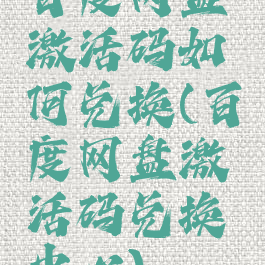 百度网盘
激活码如
何兑换(百
度网盘激
活码兑换